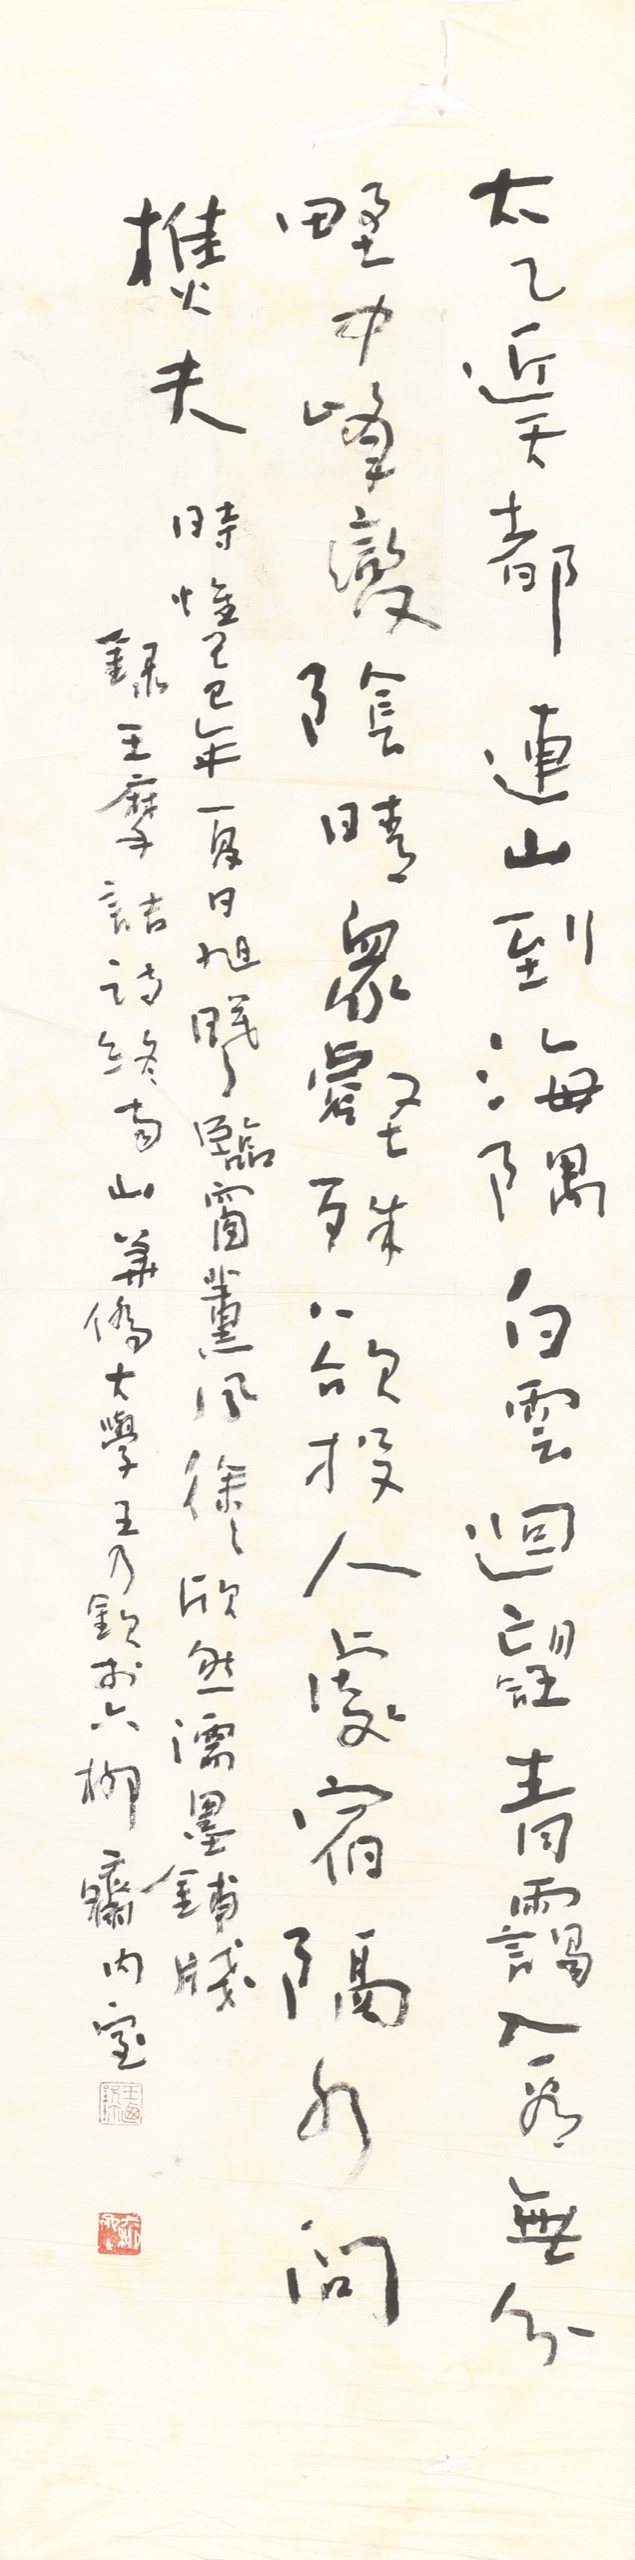 太乙近天都連山到海隅白雲迴望合青靄入看無分
野中峰變陰晴衆壑殊欲投人處宿隔水問
樵夫
時惟己巳年夏日旭曦臨窗薰風徐徐欣然濡墨鋪牋
錄王摩詰詩終南山華僑大學王乃欽於六柳齋內室